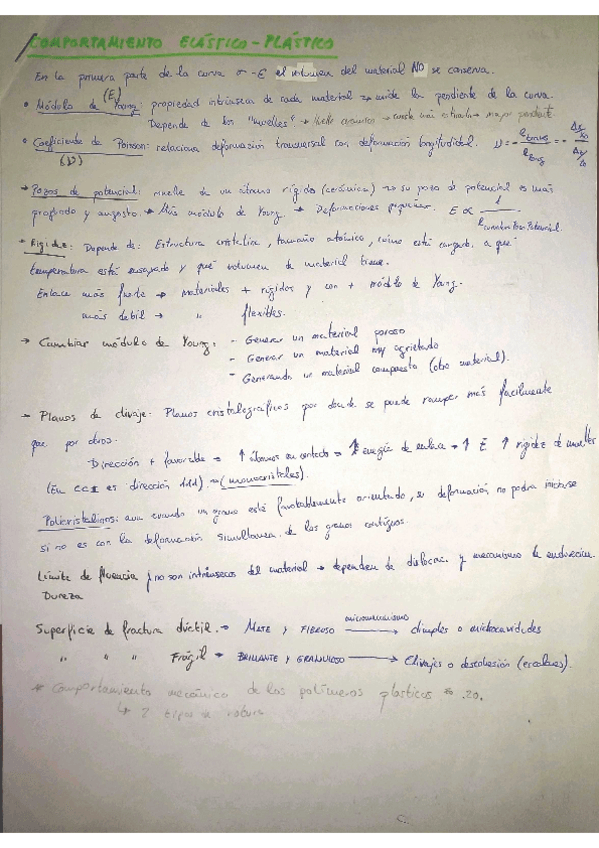 COMPORTAMIENTO ELÁSTICO-PLÁSTICO
En la primera parte de la curva σ-ε el volumen del material NO se conserva.
• Módulo de Young (E): propiedad intrínseca de cada material → mide la pendiente de la curva.
Depende de los "muelles" → cuesta más estirarlo → mayor pendiente
• Coeficiente de Poisson: relaciona deformación transversal con deformación longitudinal. ν = -
(ν)
→ Pozos de potencial: muelle de un átomo rígido (cerámica) → su pozo de potencial es más
profundo y angosto. → Más módulo de Young. → Deformaciones pequeñas. E ∝ 1
• Rigidez: Depende de: Estructura cristalina, tamaño atómico, cómo está cargado, a que
temperatura está ensayado y qué volumen de material tiene.
Enlace más fuerte → materiales + rígidos y con + módulo de Young.
más débil → " flexibles.
→ Cambiar módulo de Young: - Generar un material poroso
- Generar un material muy agrietado
- Generando un material compuesto (otro material).
- Planos de clivaje. Planos cristalográficos por donde se puede romper más facilmente
que por otros.
Dirección + favorable = ↑ átomos en contacto = ↑ energía de enlace → ↑ E ↑ rigidez de muelles
(En CCI es dirección 111) → (monocristales).
Policristalinos: aun cuando un grano esté favorablemente orientado, su deformación no podra iniciarse
si no es con la deformación simultanea de los granos contiguos.
Límite de fluencia y no son intrínsecos del material → dependen de dislocac. y mecanismo de endurecim.
Dureza
Superficie de fractura dúctil. → MATE y FIBROSO microscopicamente → dimples o microcavidades
" " " Frágil → BRILLANTE y GRANULOSO → Clivajes o descohesión (escalones).
* Comportamiento mecánico de los polímeros plasticos 20.
↳ 2 tipos de rotura